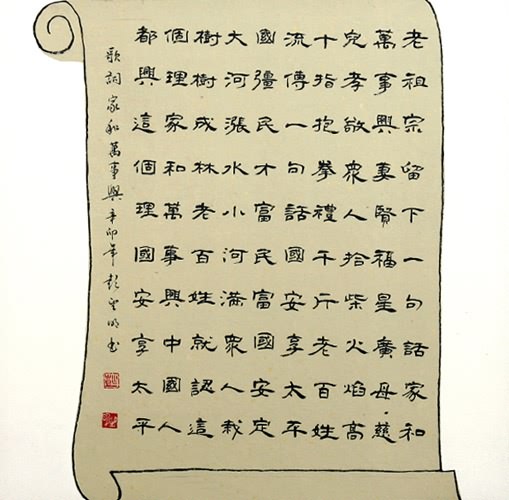 老祖宗留下一句話家和
萬事興妻賢福星廣母慈
兒孝敬衆人拾柴火焰高
十指抱拳禮千斤老百姓
流傳一句話國安享太平
國彊民才富民富國安定
大河漲水小河滿衆人栽
樹樹成林老百姓就認這
個理家和萬事興中國人
都興這個理國安享太平
歌詞家和萬事興辛卯年彭明书